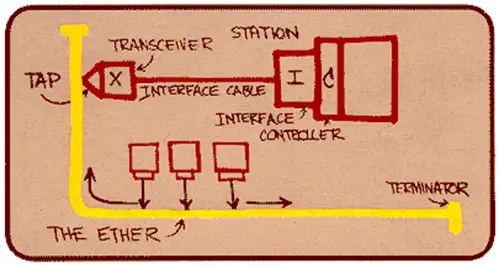 STATION
TRANSCEIVER
TAP
X
I
C
INTERFACE CABLE
INTERFACE
CONTROLLER
TERMINATOR
THE ETHER